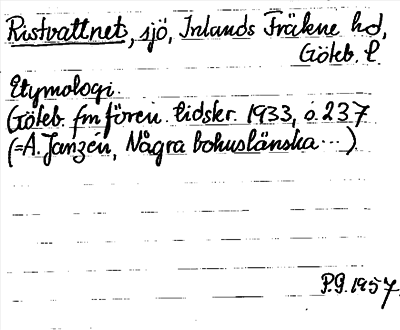 Ristvattnet, sjö, Inlands Fräkne hd,
Göteb. l.
Etymologi.
Göteb. fm fören. tidskr. 1933, s. 237
(=A. Janzén, Några bohuslänska ...)
P.G. 1957.